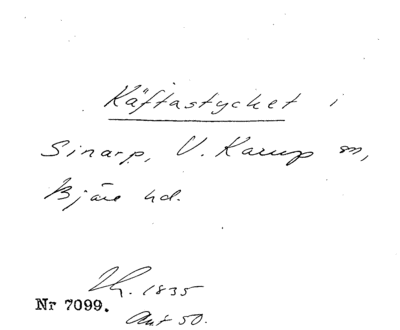 Käftastycket i
Sinarp, V. Karup sn,
Bjäre hd.
1835
Nr 7099.
Ant 50.